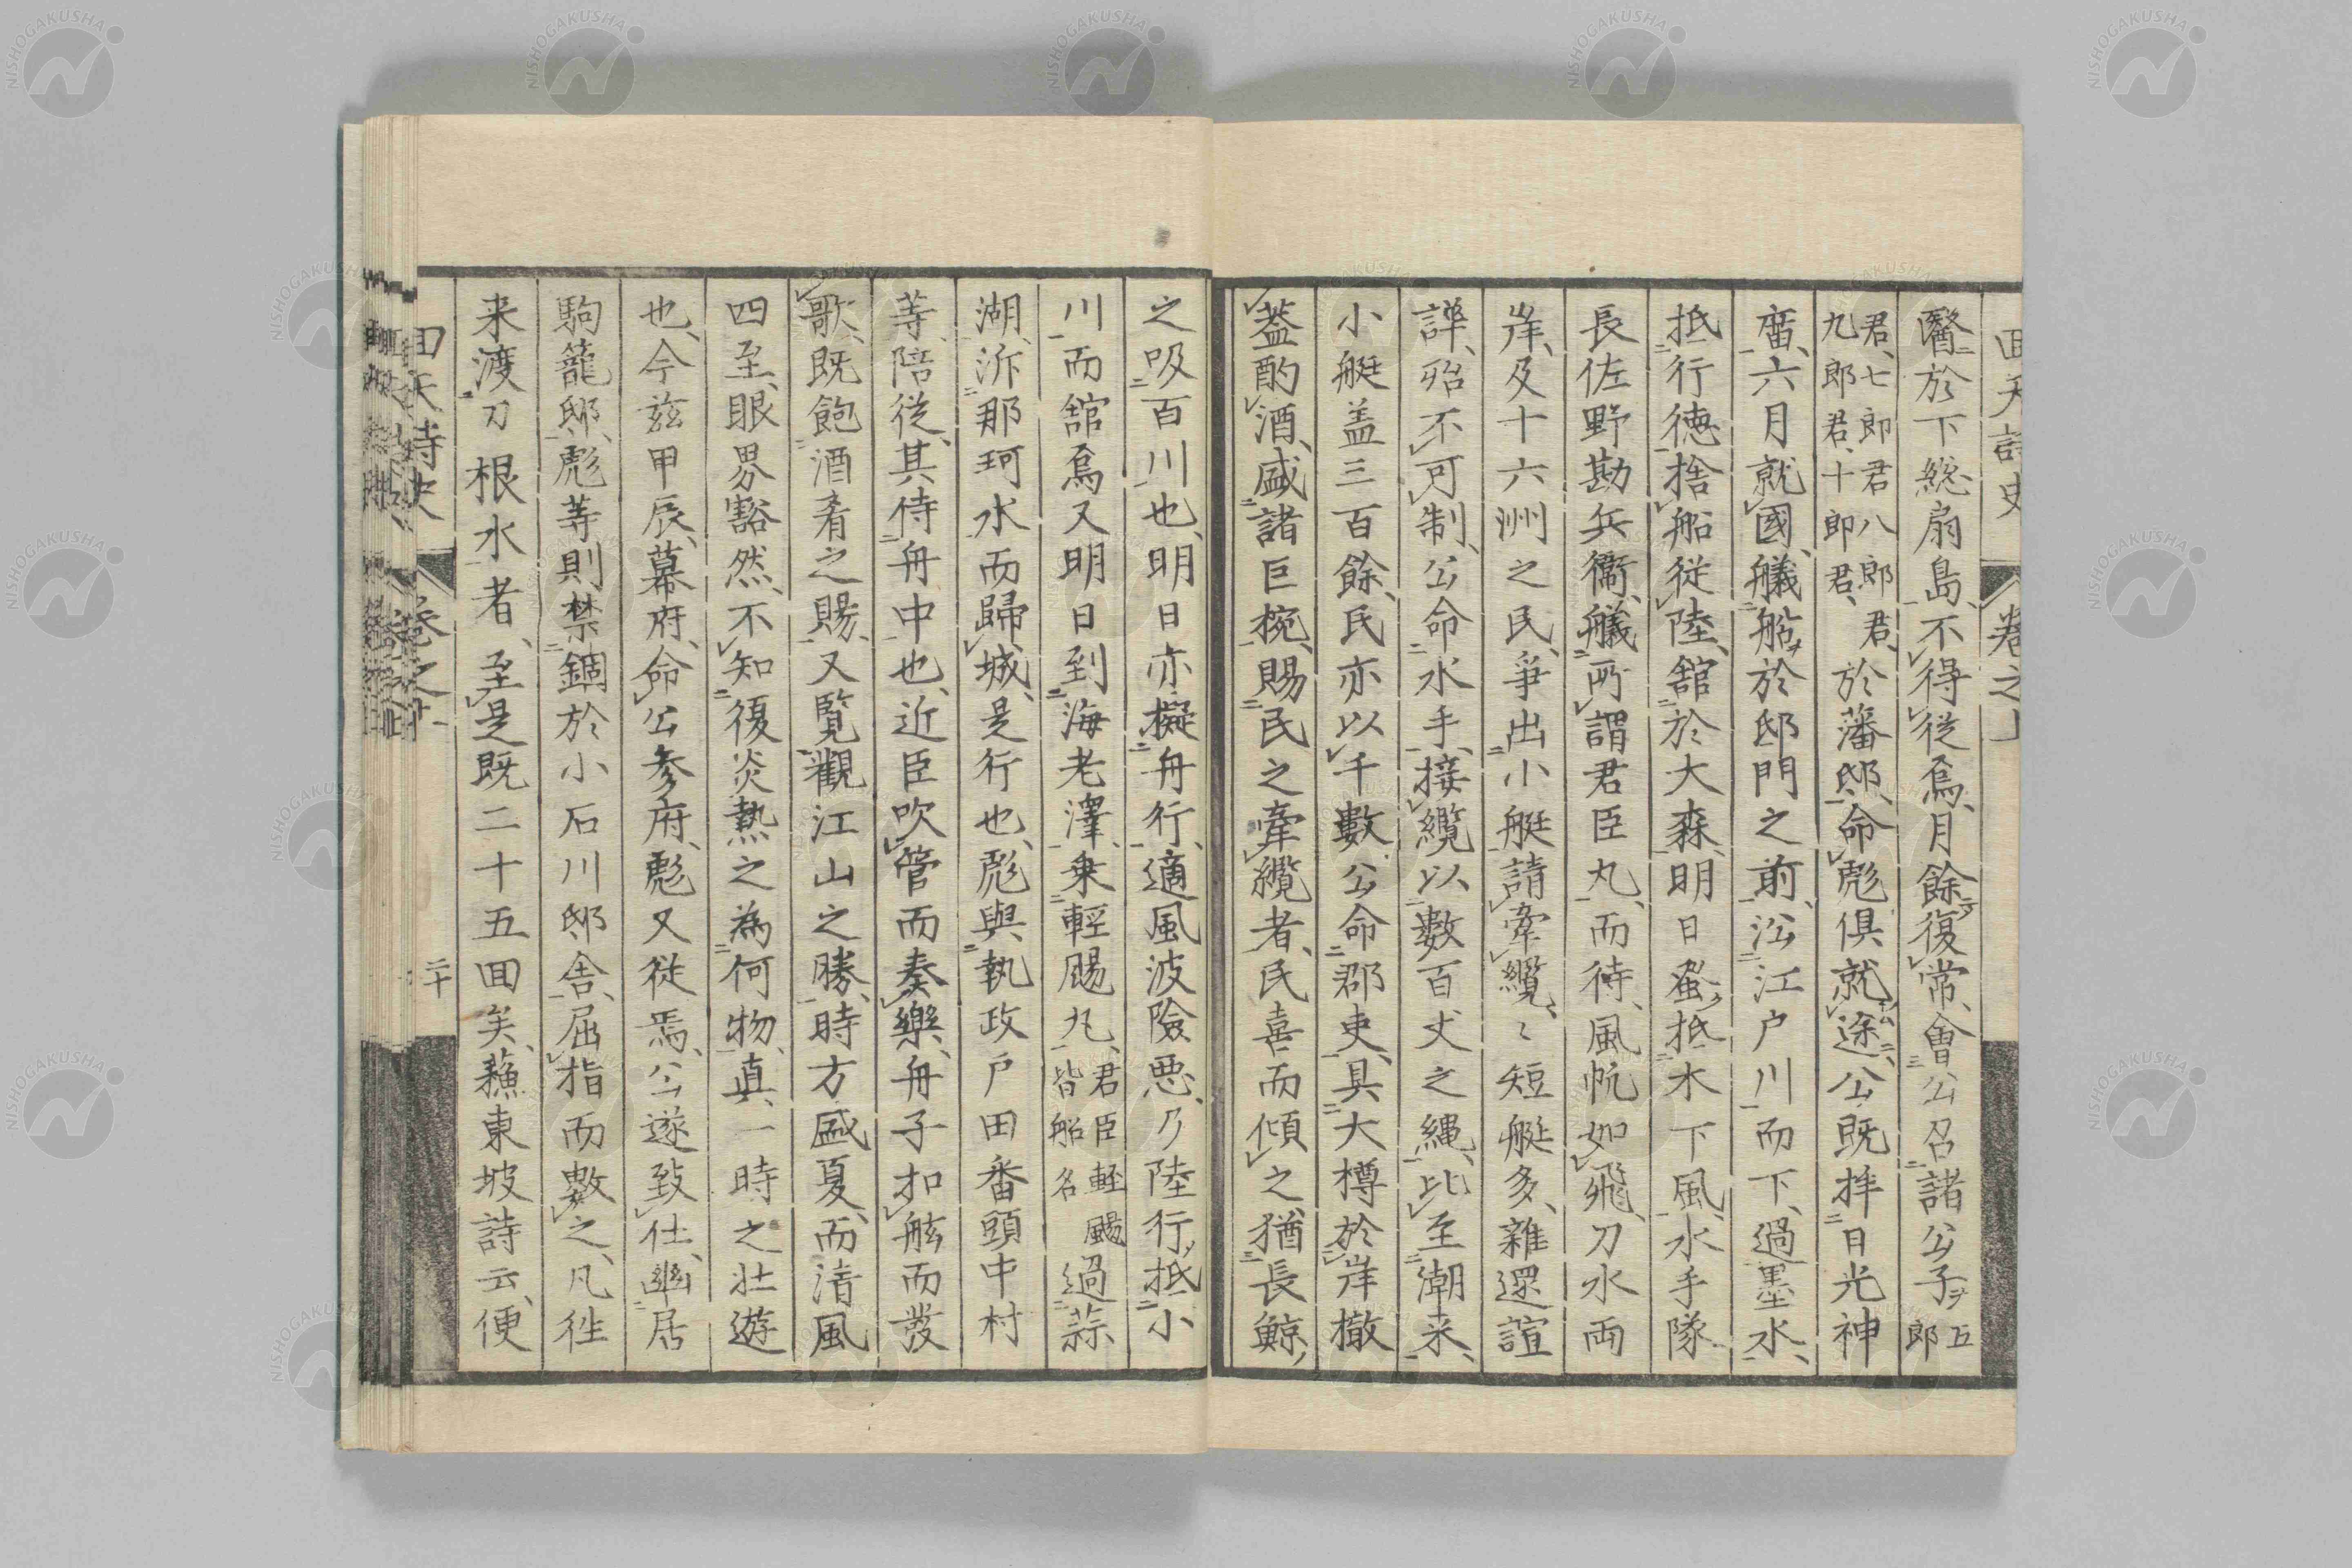 回天詩史 卷之上
醫於下總扇島、不得從焉、月餘復常、會公召諸公子ヲ五郎
君、七郎君八郎君、九郎君、十郎君、於藩邸、命彪俱就途、公既拝日光神
廟、六月就國、艤船ヲ於邸門之前、㳂江戸川而下、過墨水、
抵行徳、捨船従陸、舘於大森、明日蚤抵木下風、水手隊
長佐野勘兵衞、艤所謂君臣丸、而待、風帆如飛、刀水兩
岸、及十六洲之民、爭出小艇、請牽纜、〻短艇多、雜遝諠
譁、殆不可制、公命水手、接纜以數百丈之繩、比至潮来、
小艇盖三百餘、民亦以千數、公命郡吏、具大樽於岸撤
葢酌酒、盛諸巨椀、賜民之牽纜者、民喜而傾之、猶長鯨
之吸百川也、明日亦擬舟行、適風波險悪、乃陸行抵小
川而舘焉又明日到海老澤、乗輕颺丸、君臣輕颺皆船名過蒜
湖、泝那珂水而歸城、是行也、彪與執政戸田番頭中村
等、陪従、其侍舟中也、近臣吹管而奏樂、舟子扣舷而發
歌、既飽酒肴之賜、又覽觀江山之勝、時方盛夏、而清風
四至、眼界豁然、不知復炎熱之為何物、真一時之壮遊
也、今茲甲辰、幕府、命公参府、彪又従焉、公遂致仕、幽居
駒籠邸、彪等則禁錮於小石川邸舎、屈指而數之、凡徃
来渡刀根水者、至是既二十五回矣、蘓東坡詩云、便
回天詩史 卷之上 二十